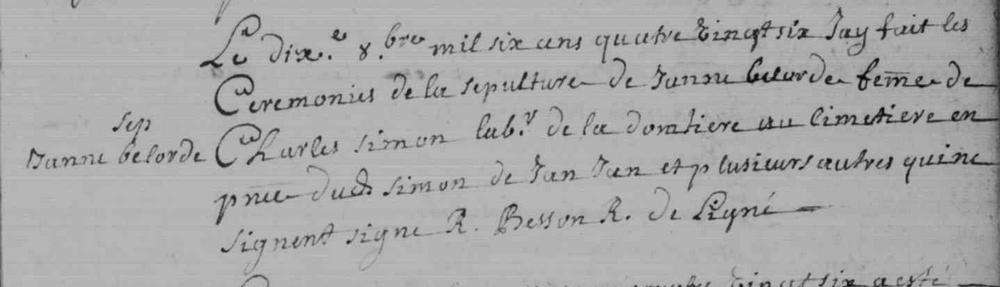 Le dix.e 8.bre mil six ans quatre vingt six Jay fait les
Ceremonies de la sepulture de Janne belorde feme de
sep
Janne belorde
Charles simon lab.r de la domtiere au Cimetiere en
pnce dud simon de Jan Jan et plusieurs autres qui ne
signent signe R. Besson R. de Ligné
vingt six a esté